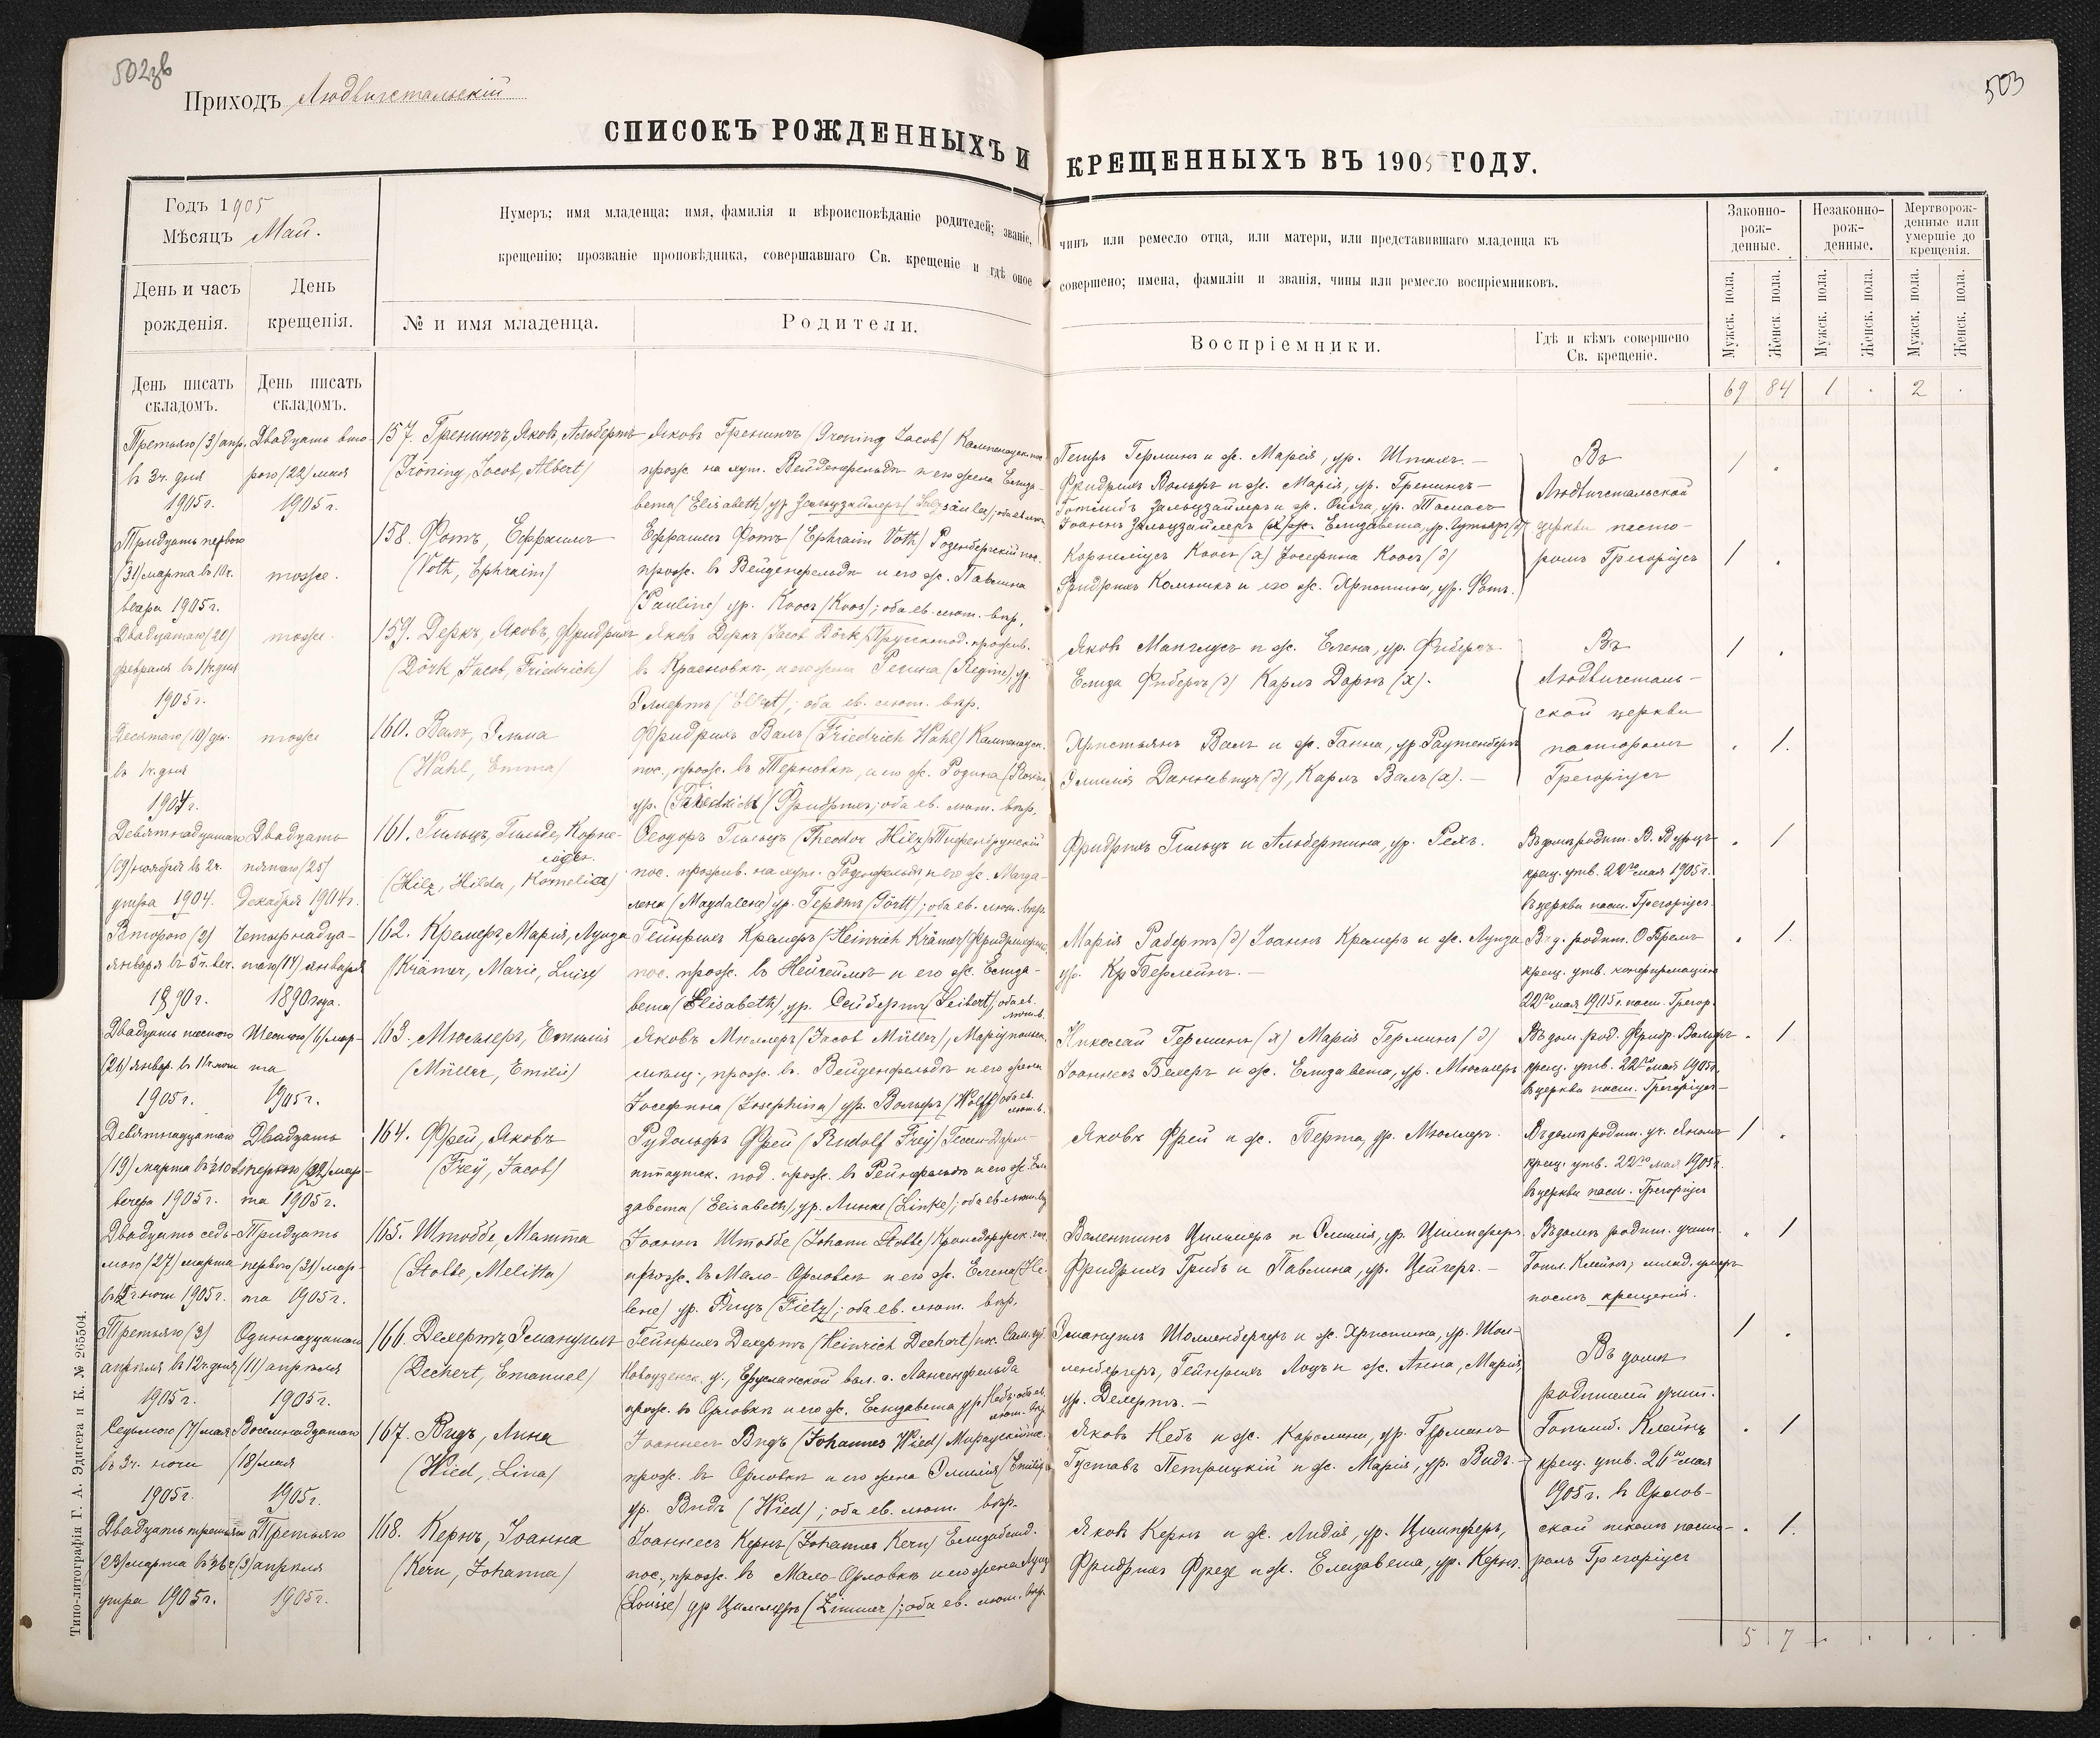 502зв
503
Приходъ Людвигстальскій
СПИСОКЪ РОЖДЕННЫХЪ И КРЕЩЕННЫХЪ ВЪ 1905 ГОДУ.
Годъ 1905
Мѣсяцъ Май.
Нумеръ; имя младенца; имя, фамилія и вѣроисповѣданіе родителей; званіе, чинъ или ремесло отца, или матери, или представившаго младенца къ
крещенію; прозваніе проповѣдника, совершавшаго Св. крещеніе и гдѣ оное совершено; имена, фамиліи и званія, чины или ремесло воспріемниковъ.
Законно-рож-денные.
Незаконно-рож-денные.
Мертворож-денные или умершіе до крещенія.
День и часъ рожденія.
День крещенія.
№ и имя младенца.
Родители.
Воспріемники.
Гдѣ и кѣмъ совершено Св. крещеніе.
Мужск. пола. Женск. пола. Мужск. пола. Женск. пола. Мужск. пола. Женск. пола.
День писать складомъ.
День писать складомъ.
69 84 1 . 2 .
Третьяго (3) апр.
въ 3 ч. дня
1905 г.
Двадцать вто-
рого (22) мая
1905 г.
157. Гренингъ, Яковъ, Альбертъ
(Gröning, Jacob, Albert)
Яковъ Гренингъ (Gröning Jacob)
прож. на хут. Вейденфельдъ и его жена Елиза-
вета (Elisabeth) ур. Зальцзайлеръ (Salzsäuler); оба ев. лют.
Петръ Герлингъ и ж. Марія, ур.
Фридрихъ Вольфъ и ж. Марія, ур. Гренингъ —
Готлибъ Зальцзайлеръ и ж. Ольга, ур. Томасъ
Іоаннъ Зальцзайлеръ (х) Елизавета, ур.
Въ
Людвигстальской
церкви пасто-
ромъ Грегоріусъ
1 .
Тридцать перваго
(31) марта въ 10 ч.
вечера 1905 г.
тоже.
158. Фотъ, Ефраимъ
(Voth, Ephraim)
Ефраимъ Фотъ (Ephraim Voth) Розенбергскій пос.
прож. въ Вейденфельдѣ и его ж. Павлина
(Pauline) ур. Коосъ (Koos); оба ев. лют. вѣр.
Корнеліусъ Коосъ (х) Іосефина Коосъ (д)
Фридрихъ и его ж. Христина, ур. Фотъ.
1 .
Двадцатаго (20)
февраля въ 11 ч. дня
1905 г.
тоже.
159. Деркъ, Яковъ, Фридрихъ
(Dörk Jacob, Friedrich)
Яковъ Деркъ (Jacob Dörk) Прусскоподд. прожив.
въ Красновкѣ, и его жена Регина (Regine), ур.
оба ев. лют. вѣр.
Яковъ Манглусъ и ж. Елена, ур. Фибергъ
Елиза Фибергъ (д) Карлъ Доркъ (х).
Въ
Людвигсталь-
ской церкви
пасторомъ
Грегоріусъ
1 .
Десятаго (10) дек.
въ 1 ч. дня
1904 г.
тоже
160. Валъ, Эмма
(Wahl, Emma)
Фридрихъ Валъ (Friedrich Wahl)
пос., прож. въ Терновкѣ, и его ж. Розина (Rosine)
ур. (Friedrich) Фридрихъ; оба ев. лют. вѣр.
Христьянъ Валъ и ж. Ганна, ур. Раутенбергъ
Эмилія (д), Карлъ Валъ (х). —
. 1.
Девятнадцатаго
(19) ноября въ 2 ч.
утра 1904.
Двадцать
пятаго (25)
Декабря 1904 г.
161. Гильцъ, Гильде, Корне-
лія.
(Hilz, Hilda, Kornelia)
Ѳеодоръ Гильцъ (Theodor Hilz) Тифенбрунскій
пос. прожив. на хут. Розенфельдѣ, и его ж. Магда-
лена (Magdalene) ур. Гертъ (Görtt); оба ев. лют. вѣр.
Фридрихъ Гильцъ и Альбертина, ур. Рехъ.
Въ домѣ родит. В. Вурцъ
крещ. утв. 22го мая 1905 г.
въ церкви паст. Грегоріусъ.
. 1
Второго (2)
января въ 5 ч. веч.
1890 г.
Четырнадца-
таго (14) января
1890 года.
162. Кремеръ, Марія, Луиза
(Krämer, Marie, Luise)
Гейнрихъ Кремеръ (Heinrich Krämer)
пос. прож. въ Нейгеймѣ и его ж. Елиза-
вета (Elisabeth), ур. Сейбертъ (Seibert) оба ев. лют. в.
Марія Рабертъ (д) Іоаннъ Кремеръ и ж. Луиза
ур. Берлейнъ. —
Въ д. родит.
крещ. утв. конфирмаціею
22го мая 1905 г. паст. Грегор.
. 1.
Двадцать шестого
(26) январ. въ 11 ч. ночи
1905 г.
Шестого (6) мар-
та
1905 г.
163. Мюллеръ, Емилія
(Müller, Emilie)
Яковъ Мюллеръ (Jacob Müller), Маріупольск.
мѣщ., прож. въ Вейденфельдѣ и его жена
Іосефина (Josephina) ур. Вольфъ (Wolff) оба ев. лют. в.
Николай Герлингъ (х) Марія Герлингъ (д)
Іоаннесъ Белеръ и ж. Елизавета, ур. Мюллеръ
Въ дом. род. Фридр. Вольфъ
крещ. утв. 22го мая 1905 г.
въ церкви паст. Грегоріусъ —
. 1
Девятнадцатаго
(19) марта въ 10
вечера 1905 г.
Двадцать
(22) мар-
та 1905 г.
164. Фрей, Яковъ
(Freÿ, Jacob)
Рудольфъ Фрей (Rudolf Freÿ) Гессен-Дарм-
штадтск. под. прож. въ Рейнфельдѣ и его ж. Ели-
завета (Elisabeth), ур. Линке (Linke); оба ев. лют. вѣр.
Яковъ Фрей и ж. Берта, ур. Мюллеръ.
Въ домѣ родит. уч.
крещ. утв. 22го мая 1905 г.
въ церкви паст. Грегоріусъ
1 .
Двадцать седь-
мого (27) марта
ночи 1905 г.
Тридцать
перваго (31) мар-
та 1905 г.
165. Штоббе, Мелитта
(Stobbe, Melitta)
Іоаннъ Штоббе (Johann Stobbe) Кронсдорфск. пос.
прож. въ Мало-Орловкѣ и его ж. Елена (He-
lene) ур. Фицъ (Fietz); оба ев. лют. вѣр.
Валентинъ Цильмеръ и Эмилія, ур. Цимпферъ.
Фридрихъ Грибъ и Павлина, ур. Цейгеръ. —
Въ домѣ родит. учит.
Готл. Клейнъ; млад. умеръ
послѣ крещенія.
. 1
Третьяго (3)
апрѣля въ 12 ч. дня
1905 г.
Одиннадцатаго
(11) апрѣля
1905 г.
166. Дехертъ, Эмануилъ
(Dechert, Emanuel)
Гейнрихъ Дехертъ (Heinrich Dechert) пос. Сам. губ.
Новоузенск. у., Ерусланской вол. с. Лангенфельда
прож. въ Орловкѣ и его ж. Елизавета ур. Небъ; оба ев. лют. вѣр.
Эмануилъ Шолленбергеръ и ж. Христина, ур. Шол-
ленбергеръ, Гейнрихъ Лоцъ и ж. Анна, Марія,
ур. Дехертъ. —
Въ домѣ
родителей учит.
Готлиб. Клейнъ
крещ. утв. 26го мая
1905 г. въ Орлов-
ской школѣ пасто-
ромъ Грегоріусъ
1 .
Седьмого (7) мая
въ 3 ч. ночи
1905 г.
Восемнадцатаго
(18) мая
1905 г.
167. Видъ, Лина
(Wied, Lina)
Іоаннесъ Видъ (Johannes Wied)
прож. въ Орловкѣ и его жена Эмилія (Emilie)
ур. Видъ (Wied); оба ев. лют. вѣр.
Яковъ Небъ и ж. Каролина, ур. Германъ
Густавъ Петрицкій и ж. Марія, ур. Видъ. —
. 1
Двадцать третьяго
(23) марта
утра 1905 г.
Третьяго
(3) апрѣля
1905 г.
168. Кернъ, Іоанна
(Kern, Johanna)
Іоаннесъ Кернъ (Johannes Kern) Елизабетд.
пос., прож. въ Мало-Орловкѣ и его жена Луиза
(Louise) ур. Циммеръ (Zimmer); оба ев. лют. вѣр.
Яковъ Кернъ и ж. Лидія, ур. Цимпферъ,
Фридрихъ Фрезе и ж. Елизавета, ур. Кернъ.
. 1.
5 7 . . . .
Типо-литографія Г. А. Эдигера и К. № 265504.